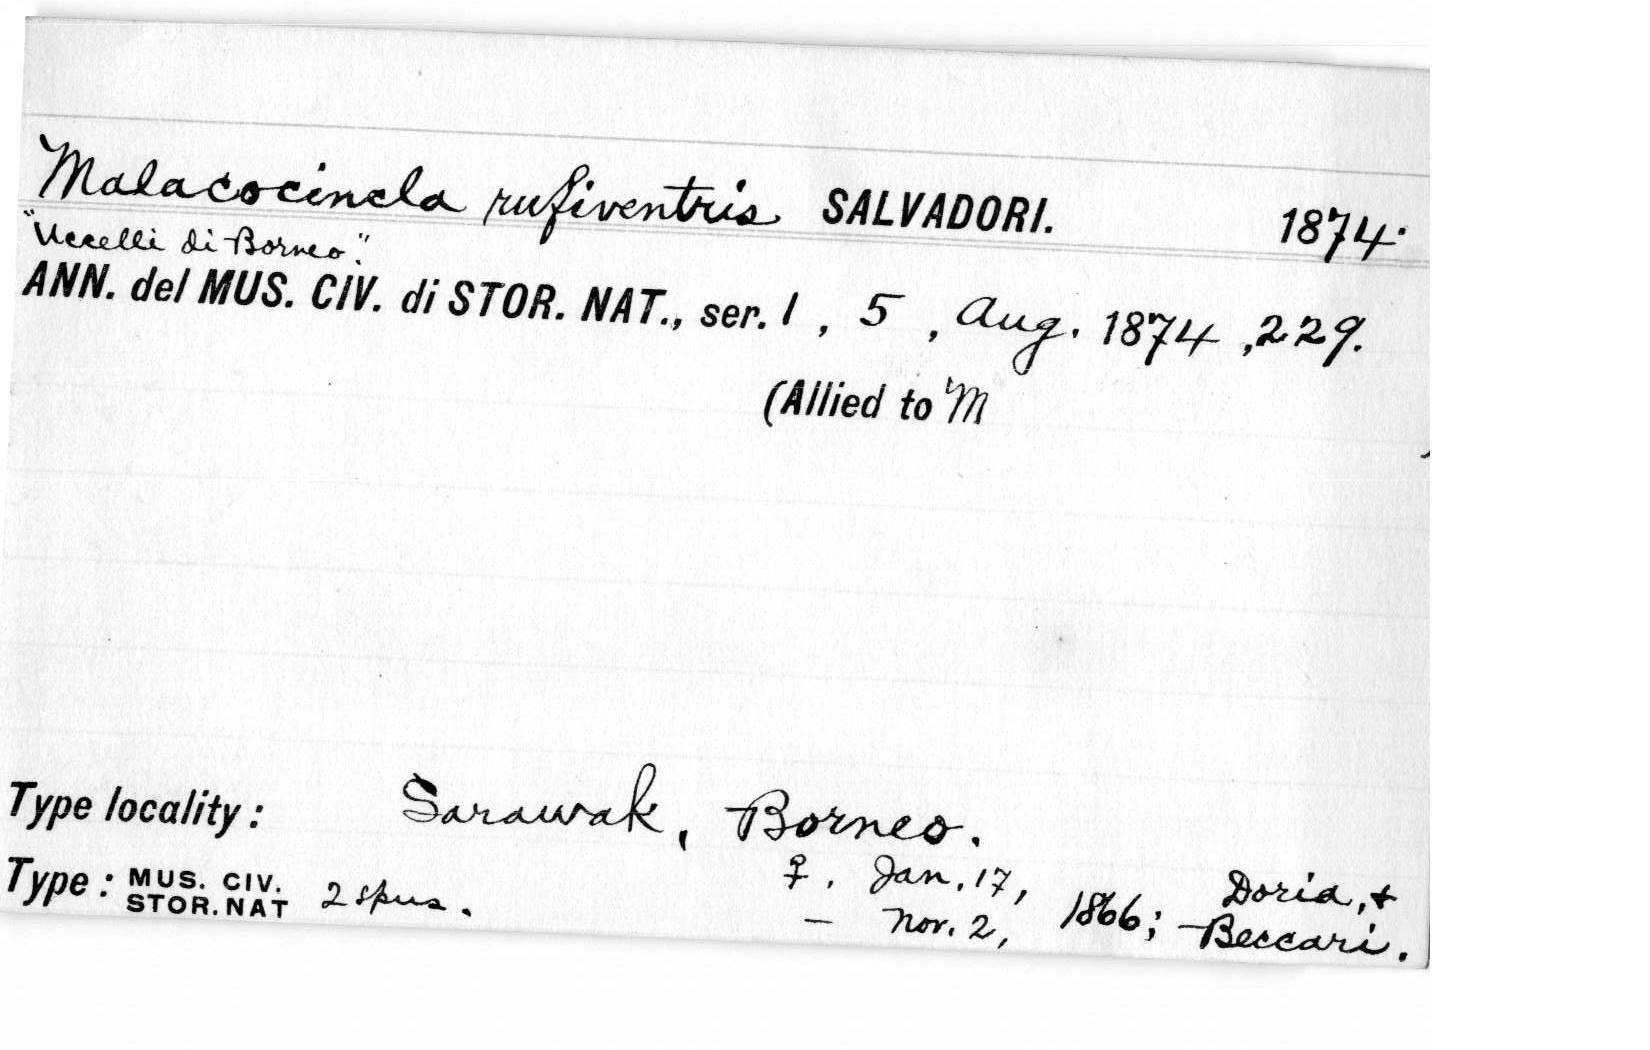 Malacocincla rufiventris SALVADORI. 1874.
"Uccelli di Borneo."
ANN. del MUS. CIV. di STOR. NAT., ser. 1, 5, Aug. 1874, 229.
(Allied to M
Type locality: Sarawak, Borneo.
Type: MUS. CIV. STOR. NAT 2 spms. ♀. Jan. 17, 1866; Doria, +
– Nov. 2, Beccari.